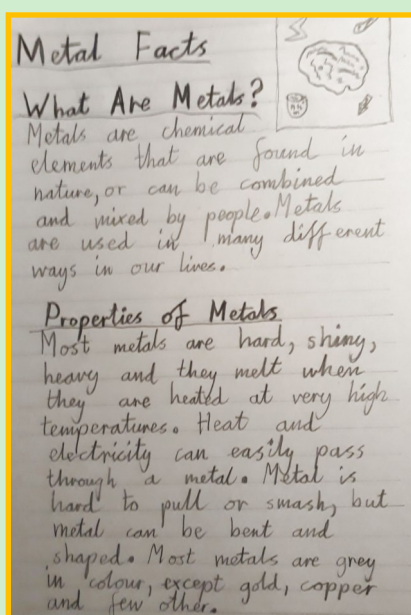 Metal Facts
What Are Metals?
Metals are chemical
elements that are found in
nature, or can be combined
and mixed by people. Metals
are used in many different
ways in our lives.
Properties of Metals
Most metals are hard, shiny,
heavy and they melt when
they are heated at very high
temperatures. Heat and
electricity can easily pass
through a metal. Metal is
hard to pull or smash, but
metal can be bent and
shaped. Most metals are grey
in colour, except gold, copper
and few other.